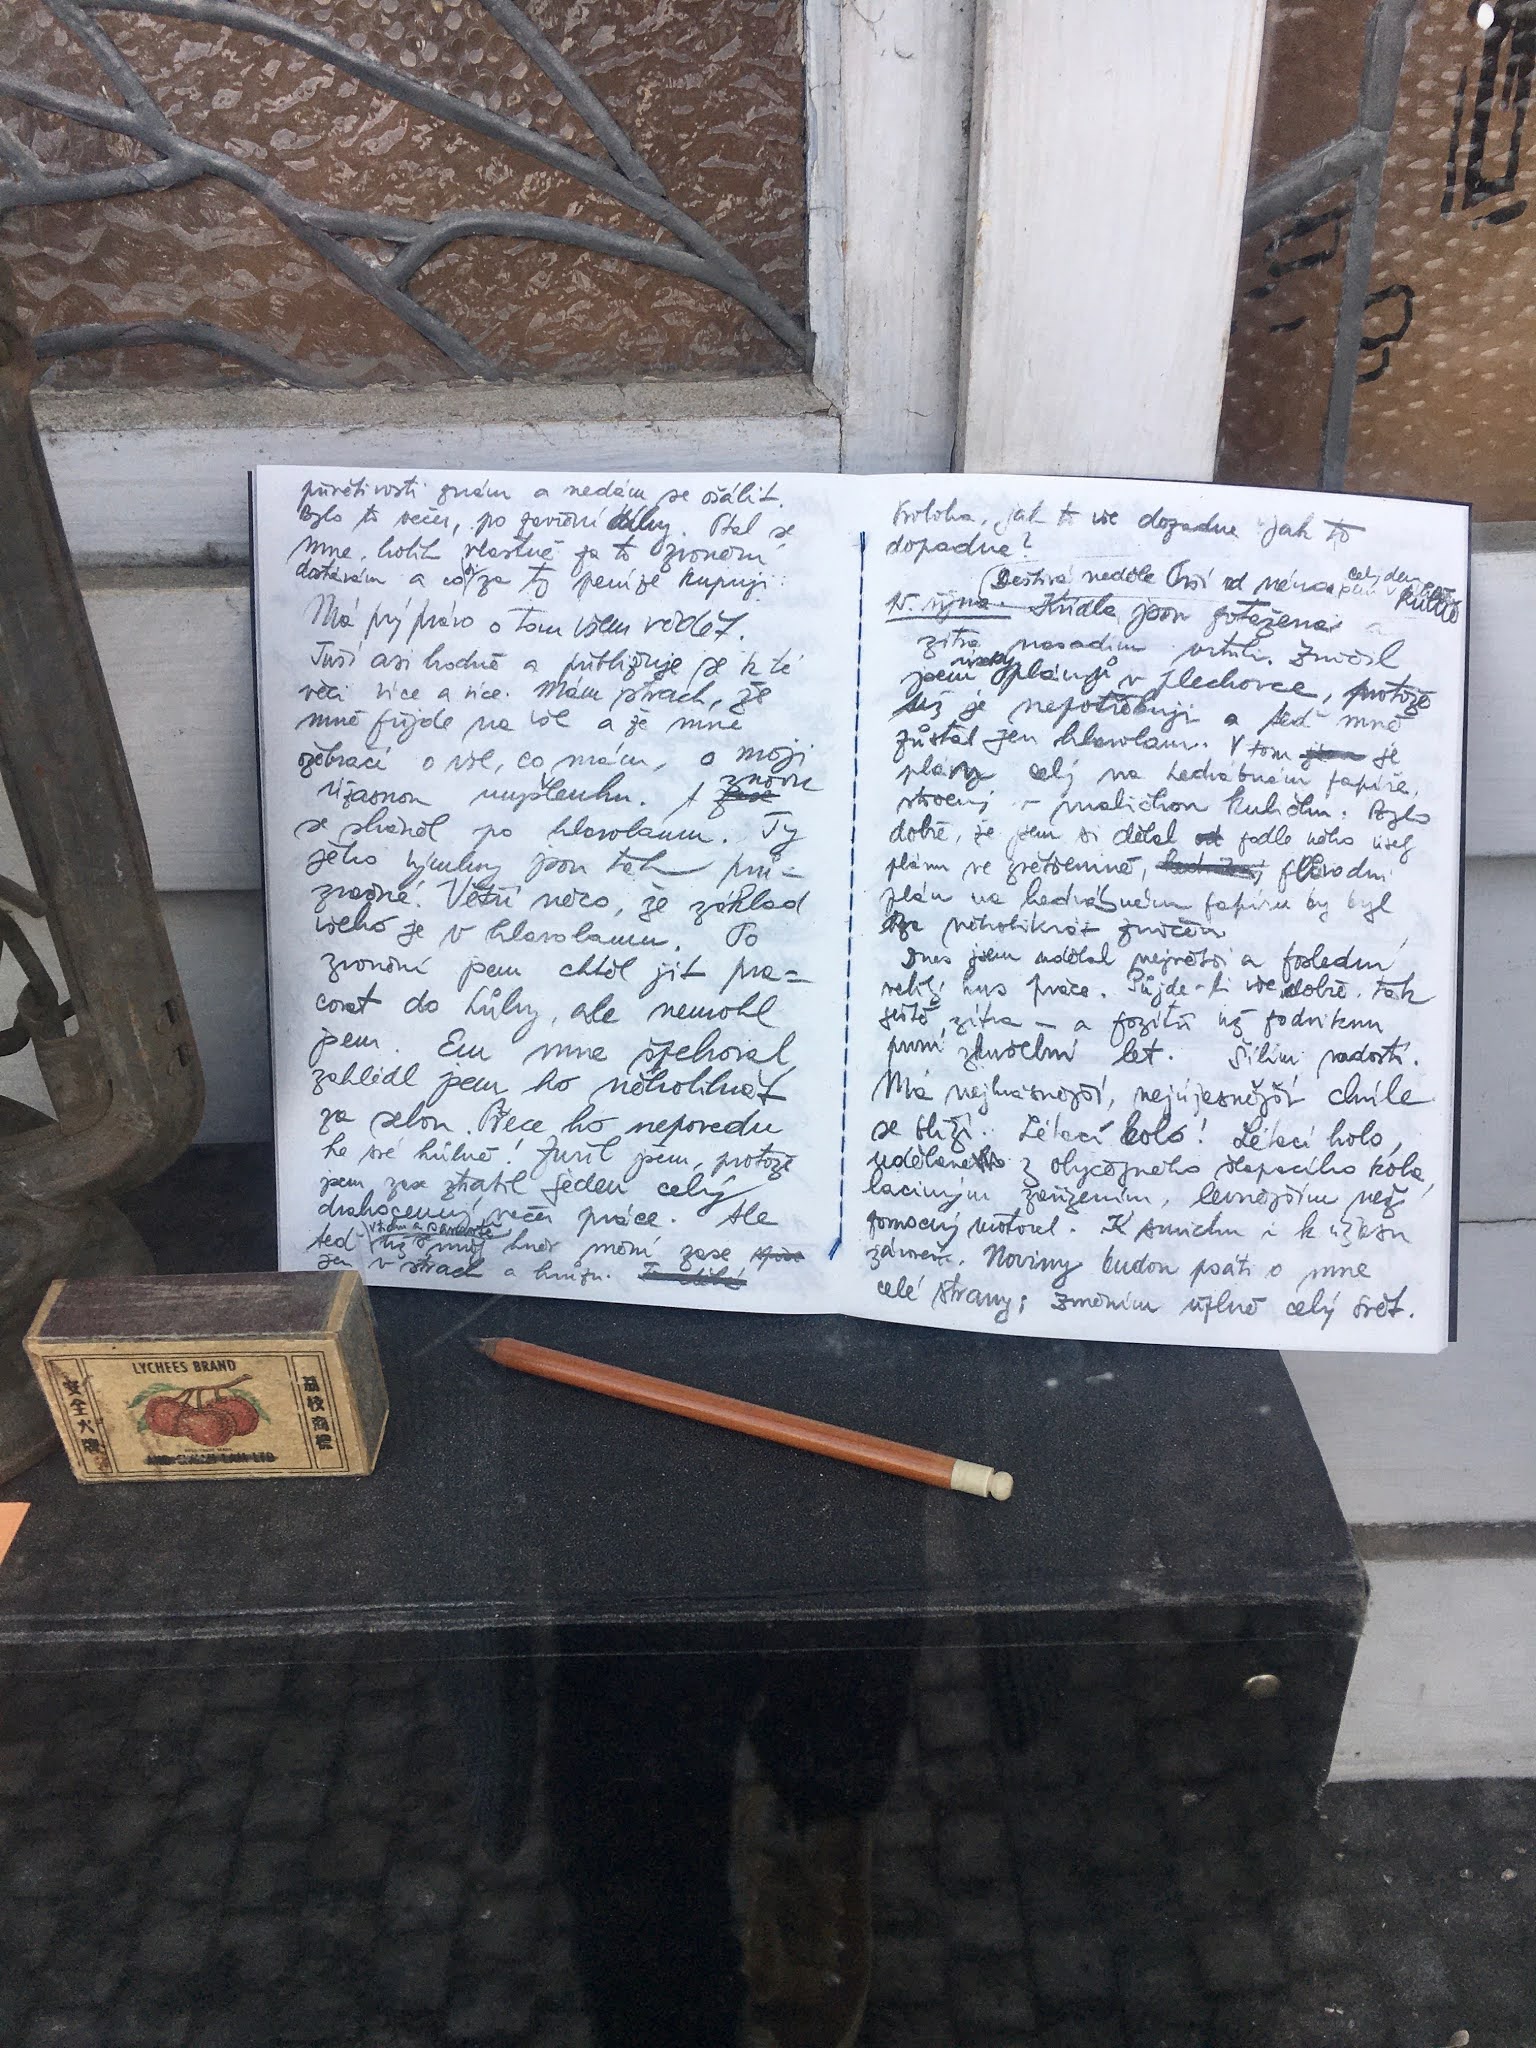 přívětivosti znám a nedám se ošálit.
Bylo to večer, po zavření dílny. Ptal se
mne, kolik vlastně za to zvonění
dostávám a co si za ty peníze kupuji.
Má prý právo o tom všem vědět.
Tuší asi hodně a přibližuje se k té
věci více a více. Mám strach, že
mně přijde na vše a že mně
ožebračí o vše, co mám, o moji
úžasnou myšlenku. A znovu
se sháněl po hlavolamu. Ty
jeho výmluvy jsou tak prů-
zračné! Větří něco, že základ
všeho je v hlavolamu. Po
zvonění jsem chtěl jít pra-
covat do kůlny, ale nemohl
jsem. Em mne špehoval
zahlédl jsem ho několikrát
za sebou. Přece ho nepovedu
ke své kůlně! Zuřil jsem, protože
jsem zase ztratil jeden celý
drahocenný večer práce. Ale
teď už se můj hněv mění zase
jen v strach a hrůzu.
Kroloka, jak to vše dopadne jak to
dopadne?
Deštivá neděle Prší od rána celý den
října. Křídla jsou potažena a
zítra nasadím vrtuli. Zničil
jsem všechny plány v plechovce, protože
už je nepotřebuji a teď mně
zůstal jen hlavolam. V tom je
plán celý na hedvábném papíře,
stočený – maličkou kuličku. Bylo
dobře, že jsem si dělal podle něho všechny
plánu ve zvětšenině, původní
plán na hedvábném papíru by byl
několikrát zničen
Dnes jsem udělal největší a poslední
veliký kus práce. Půjde-li vše dobře, tak
ještě zítra – a pozítří už podniknu
první zkušební let. Šílím radostí.
Má nejkrásnější, nejúžasnější chvíle
se blíží. Létací kolo! Létací kolo,
udělané z obyčejného šlapacího kola,
laciným zařízením, levnějším než
pomocný motorek. K smíchu i k úžasu
zároveň. Noviny budou psáti o mne
celé strany; změním úplně celý svět.
LYCHEES BRAND
安全火柴
荔枝商標